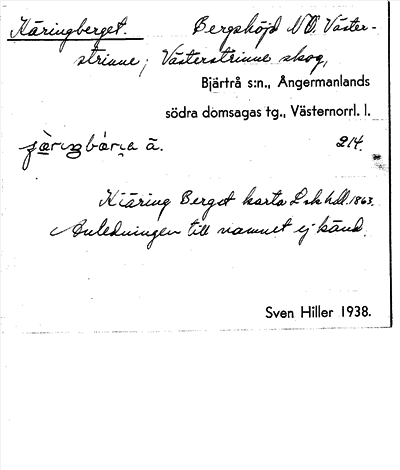 Käringberget. Bergshöjd N.O. Väster-
strinne; Västerstrinne skog,
Bjärtrå s:n., Ångermanlands
södra domsagas tg., Västernorrl. l.
ä. 214.
Kiäring Berget karta 1863.
Anledningen till namnet ej känd.
Sven Hiller 1938.